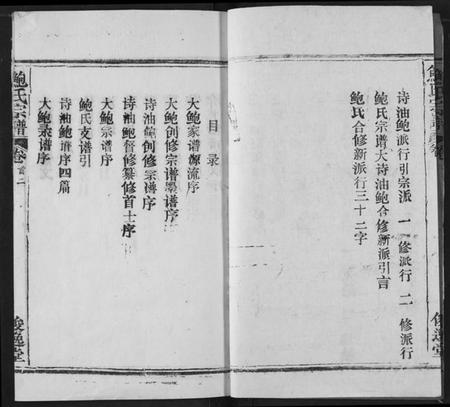 诗油鲍派行引宗派 一 修派行 二 修派行
鲍氏宗谱大诗油鲍合修新派引言
鲍氏合修新派行三十二字
俊逸堂
目录
大鲍家谱源流序
大鲍创修宗谱墨谱序
诗油鲍创修宗谱序
诗油鲍督修纂修首士序
大鲍宗谱序
鲍氏支谱引
诗油鲍谱序四篇
大鲍宗谱序
鲍氏宗谱
卷首二
俊逸堂